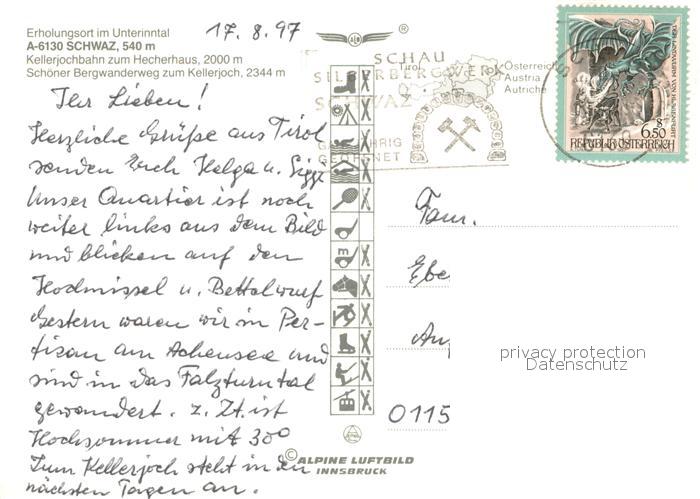 Erholungsort im Unterinntal
A-6130 SCHWAZ, 540 m
Kellerjochbahn zum Hecherhaus, 2000 m
Schöner Bergwanderweg zum Kellerjoch, 2344 m
17.8.97
Ihr Lieben!
Herzliche Grüße aus Tirol
senden Euch Helga u. Siggi
Unser Quartier ist noch
weiter links aus dem Bild
und blicken auf den
Hochnissel u. Bettelwurf
Gestern waren wir in Per-
tisau am Achensee und
sind in das Falzturntal
gewandert. z. Zt. ist
Hochsommer mit 30°
Zum Kellerjoch steht in den
nächsten Tagen an.
®
SCHAU
SILBERBERGWERK
SCHWAZ
GANZJÄHRIG
GEÖFFNET
Tirol
Österreich
Austria
Autriche
8
6.50
REPUBLIK ÖSTERREICH
m
Fam.
Ebe
0115
privacy protection
Datenschutz
© ALPINE LUFTBILD
INNSBRUCK